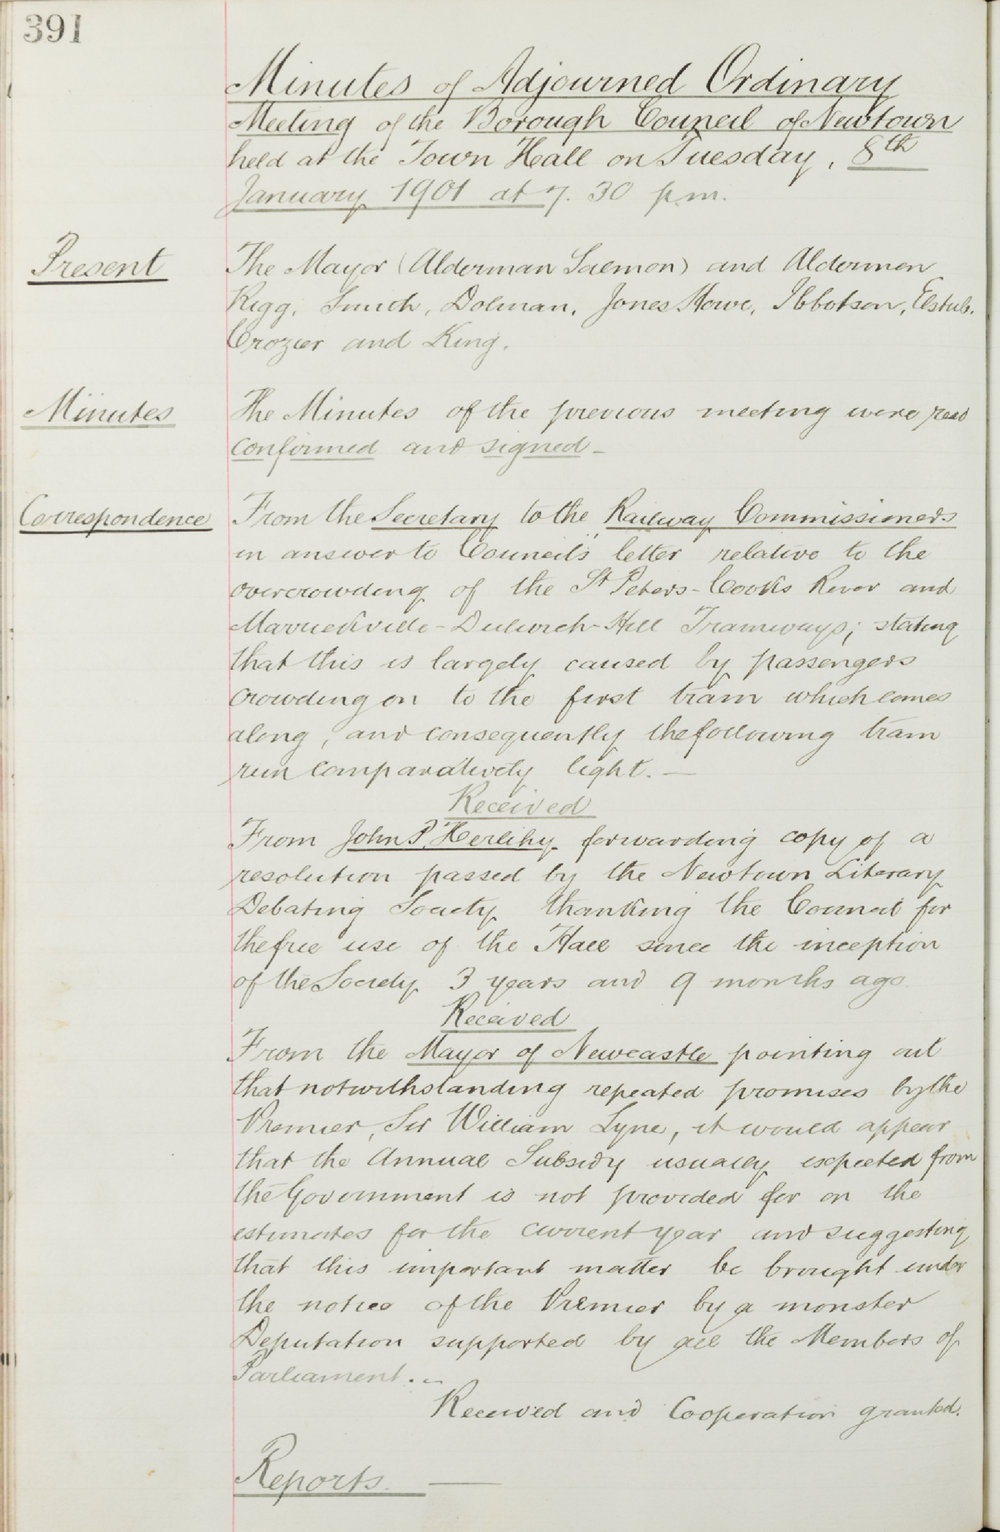 391
Minutes of Adjourned Ordinary
Meeting of the Borough Council of Newtown
held at the Town Hall on Tuesday, 8th
January 1901 at 7.30 p.m.
Present
The Mayor (Alderman Salmon) and Aldermen
Rigg, Smith, Dolman, Jones Howe, Ibbotson, Elstub.
Crozier and King.
Minutes
The Minutes of the previous meeting were read
confirmed and signed -
Correspondence
From the Secretary to the Railway Commissioners
in answer to Council's letter relative to the
overcrowding of the St Peters-Cooks River and
Marrickville-Dulwich-Hill Tramways; stating
that this is largely caused by passengers
crowding on to the first tram which comes
along, and consequently the following tram
run comparatively light. —
Received
From John P. Herlihy forwarding copy of a
resolution passed by the Newtown Literary
Debating Society thanking the Council for
the free use of the Hall since the inception
of the Society 3 years and 9 months ago.
Received
From the Mayor of Newcastle pointing out
that notwithstanding repeated promises by the
Premier, Sir William Lyne, it would appear
that the Annual Subsidy usually expected from
the Government is not provided for on the
estimates for the current year and suggesting
that this important matter be brought under
the notice of the Premier by a monster
Deputation supported by all the Members of
Parliament. -
Received and Cooperation granted.
Reports. —